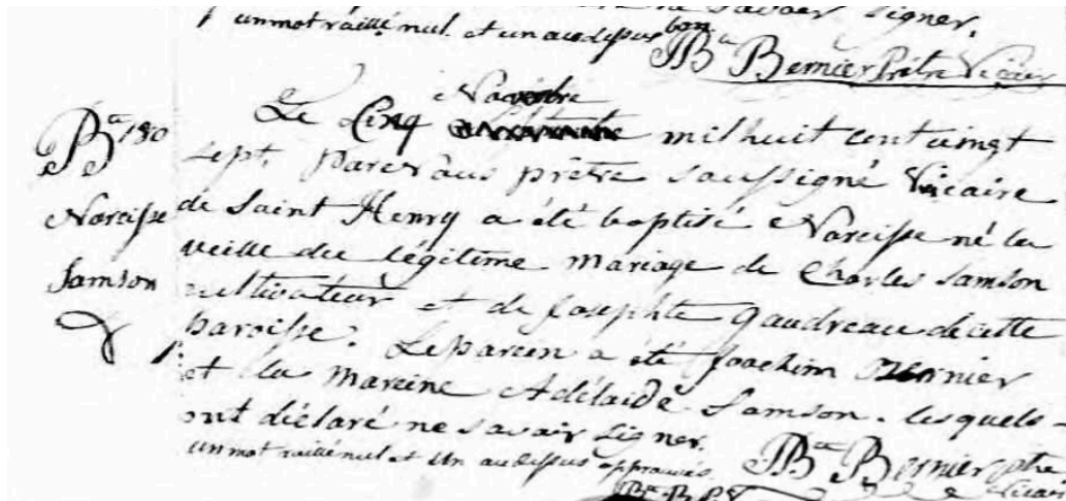 savoir signer.
un mot raillé nul et un au dessus bon.
Bte Bernier Ptre Vicaire
Bte 180
Narcisse
Samson
Novembre
Le Cinq mil huit cent vingt
sept. par nous prêtre soussigné Vicaire
de Saint Henry a été baptisé Narcisse né la
veille du légitime mariage de Charles Samson
cultivateur et de Josephte Gaudreau de cette
paroisse. Le parein a été Joachim
et la mareine Adélaïde Samson. lesquels
ont déclaré ne savoir signer.
un mot raillé nul et un au dessus approuvés.
Bte Bernier ptre
Vicair